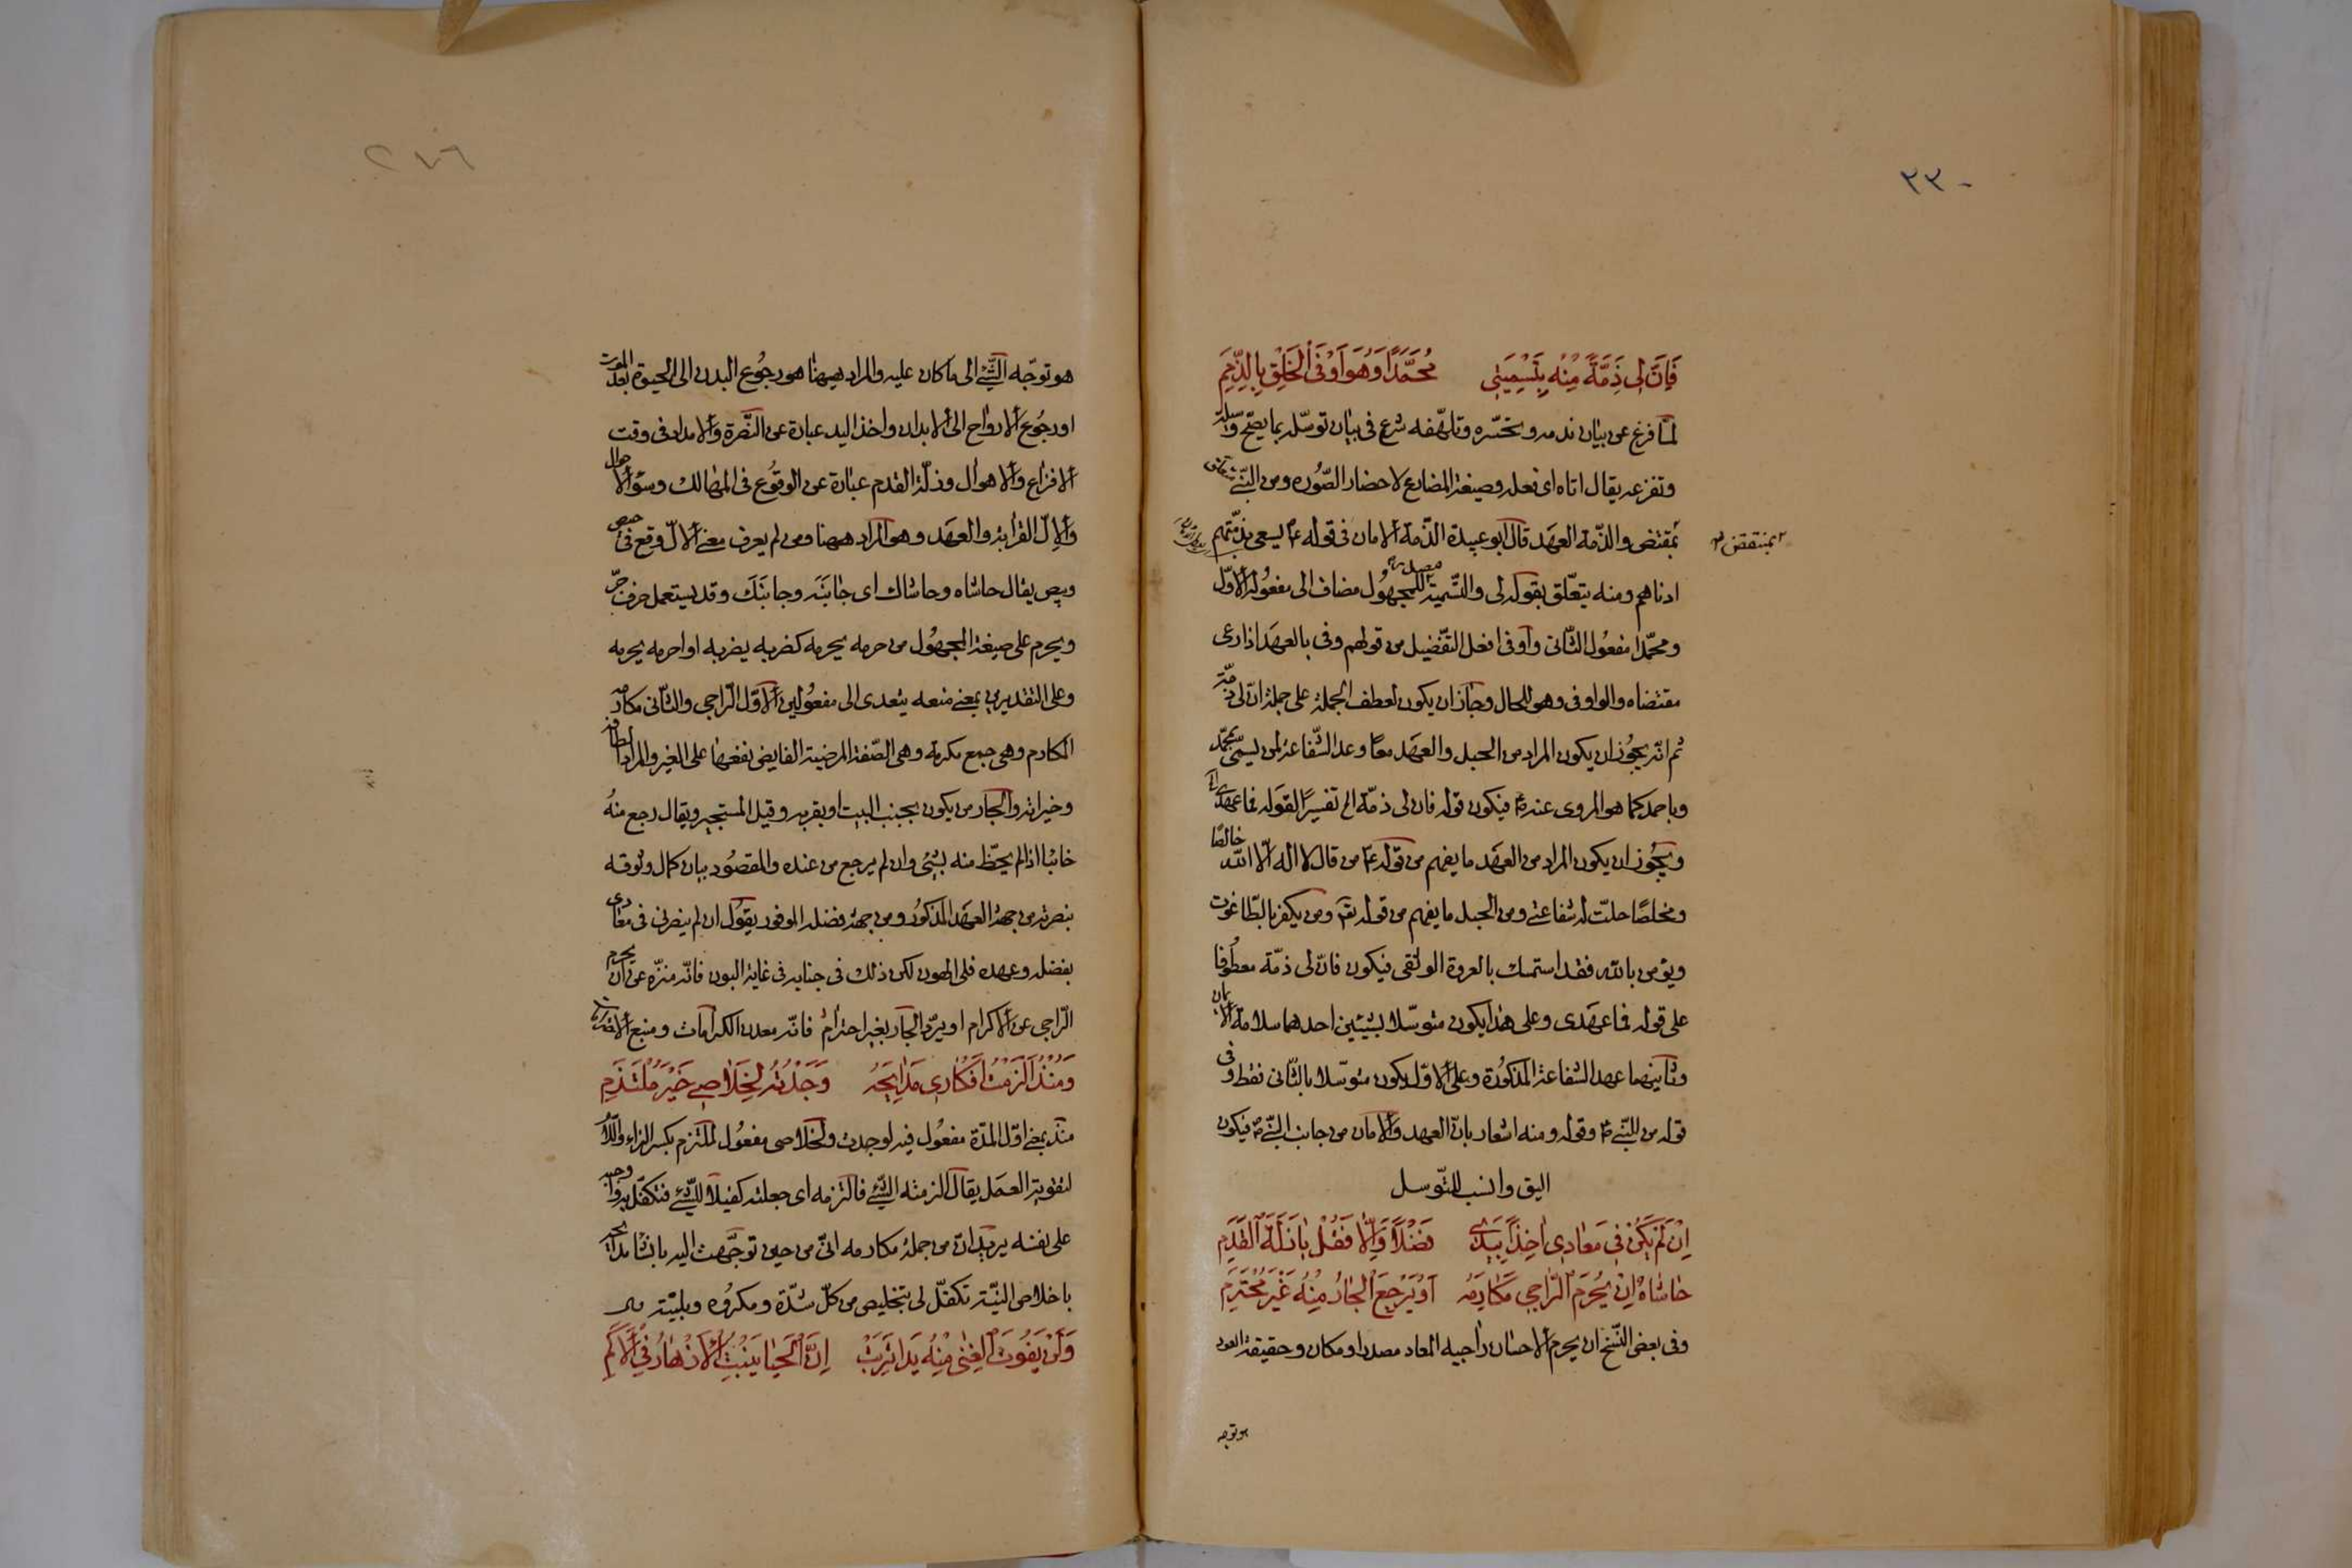 ٣٣٠
فَاِنَّ لِى ذِمَّةً مِنْهُ بِتَسْمِيَتِى مُحَمَّدًا وَهُوَ اَوْفَى الْخَلْقِ بِالذِّمَمِ
لمّا فرغ عن بيان ندمه وتحسّره وتلهّفه شرع فى بيان توسّله بما يصحّ وسيلة
وتفزعه يقال اتاه اى فعله وصيغة المضارع لاحضار الصّورة ومن النّبىّ
بمقتضى والذّمة العهد قال ابو عبيدة الذّمة الامان فى قوله ع يسعى بذمّتهم
بمنتقض
ادناهم ومنه يتعلّق بقوله لى والتّسمية مصدر للمجهول مضاف الى مفعوله الاوّل
ومحمّدا مفعول الثّانى واوفى افعل التّفضيل من قولهم وفى بالعهد اذا رعى
مقتضاه والواو فى وهو للحال وجاز ان يكون لعطف الجملة على جملة انّ لى ذمّة
ثم انّه يجوز ان يكون المراد من الحبل والعهد معًا وعد الشّفاعة لمن يسمّى بمحمّد
وباحمد كما هو المروى عنه ص فيكون قوله فان لى ذمّة الخ تفسيرًا لقوله فما عهدى
ويجوز ان يكون المراد من العهد ما يفهم من قوله ع من قال لا اله الّا الله خالصًا
ومخلصًا حلّت له شفاعتى ومن الحبل ما يفهم من قوله تعم ومن يكفر بالطّاغوت
ويؤمن بالله فقد استمسك بالعروة الوثقى فيكون فانّ لى ذمّة معطوفا
على قوله فما عهدى وعلى هذا يكون متوسّلا بشيئين احدهما سلامة الايمان
وثانيهما عهد الشفاعة المذكورة وعلى الاوّل يكون متوسّلا بالثّانى فقط وفى
قوله من النّبىّ ص وقوله ومنه اشعار بانّ العهد والامان من جانب النّبىّ ص فيكون
اليق وانسب للتّوسل
اِنْ لَمْ يَكُنْ فِى مَعَادِى اٰخِذًا بِيَدِى فَضْلًا وَاِلَّا فَقُلْ يٰا زَلَّةَ الْقَدَمِ
حٰاشٰاهُ اِنْ يُحْرَمَ الرَّاجِى مَكَارِمَهُ اَوْ يَرْجِعَ الْجٰارُ مِنْهُ غَيْرَ مُحْتَرَمِ
وفى بعض النّسخ ان يحرم الاحسان راجيه المعاد مصدر او مكان وحقيقة العود
هو توجه
٢٧٦
هو توجّه الشّئ الى ما كان عليه والمراد هيهنا هو رجوع البدن الى الحيوة بعد الموت
او رجوع الارواح الى الابدان واخذ اليد عبارة عن النّصرة والامداد فى وقت
الافزاع والاهوال وزلّة القدم عبارة عن الوقوع فى المهالك وسوء الاحوال
والاِلّ القرابة والعهد وهو المراد هيهنا ومن لم يعرف معنى الالّ وقع فى حيص
وبيص يقال حاشاه وحاشاك اى جانَبَه وجانَبَك وقد يستعمل حرف جرّ
ويحرم على صيغة المجهول من حرمه يحرمه كضربه يضربه او احرمه يحرمه
وعلى التقديرين بمعنى منعه يتعدى الى مفعولين الاوّل الرّاجى والثّانى مكارمه
المكارم وهى جمع مكرمة وهى الصّفة المرضية الفايض نفعها على الغير والمراد
وخيراته والجار من يكون بجنب البيت او بقربه وقيل المستجير ويقال رجع منهُ
خائبا اذا لم يحظّ منه بشئ وان لم يرجع من عنده والمقصود بيان كمال وثوقه
بنصرته من جهة العهد المذكور ومن جهة فضله الموفور يقول ان لم ينصرنى فى معادى
بفضله وعهده فلى الهون لكن ذلك فى جنابه فى غاية البون فانّه منزّه عن ان يحرم
الرّاجى عن الاكرام او يردّ الجار بغير احترام فانّه معدن الكرامات ومنبع
وَمُنْذُ اَلْزَمْتُ اَفْكٰارِى مَدٰايِحَهُ وَجَدْتُهُ لِخَلٰاصِى خَيْرَ مُلْتَزِمِ
منذ بمعنى اوّل المدّة مفعول فيه لوجدت ولخلاصى مفعول لملتزم بكسر الزاء واللّام
لتقوية العمل يقال الزمته الشّئ فالتزمه اى جعلته كفيلا للشّئ فتكفّل به واوجبه
على نفسه يريد انّ من جملة مكارمه انّى من حين توجّهت اليه بانشاء مدايحه
باخلاص النّيّة تكفّل لى بتخليص من كلّ شدّة ومكروه وبليّة
وَلَنْ يَفُوتَ الْغِنٰى مِنْهُ يَدًا تَرِبَتْ اِنَّ الْحَيٰا يُنْبِتُ الْاَزْهٰارَ فِى الْاَكَمِ